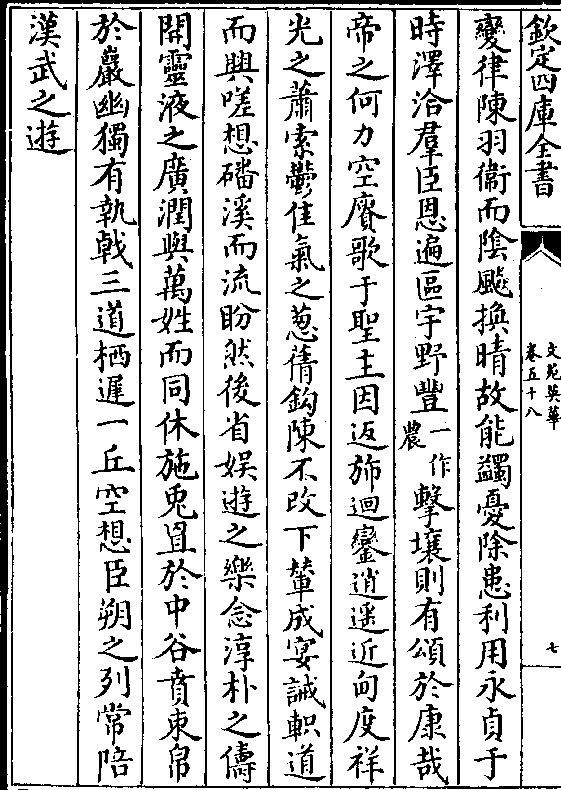 欽定四庫全書
文苑英華
卷五十八
七
變律陳羽衛而陰颷換晴故能蠲憂除患利用永貞于
時澤洽羣臣恩遍區宇野豐一作農擊壤則有頌於康哉
帝之何力空賡歌于聖主因返斾迴鑾逍遥近甸度祥
光之蕭索鬱佳氣之葱蒨鈎陳不改下輦成宴誡軹道
而興嗟想磻溪而流盼然後省娯遊之樂念淳朴之儔
開靈液之廣潤與萬姓而同休施兎罝於中谷賁束帛
於巖幽獨有執㦸三道栖遲一丘空想臣朔之列常陪
漢武之遊